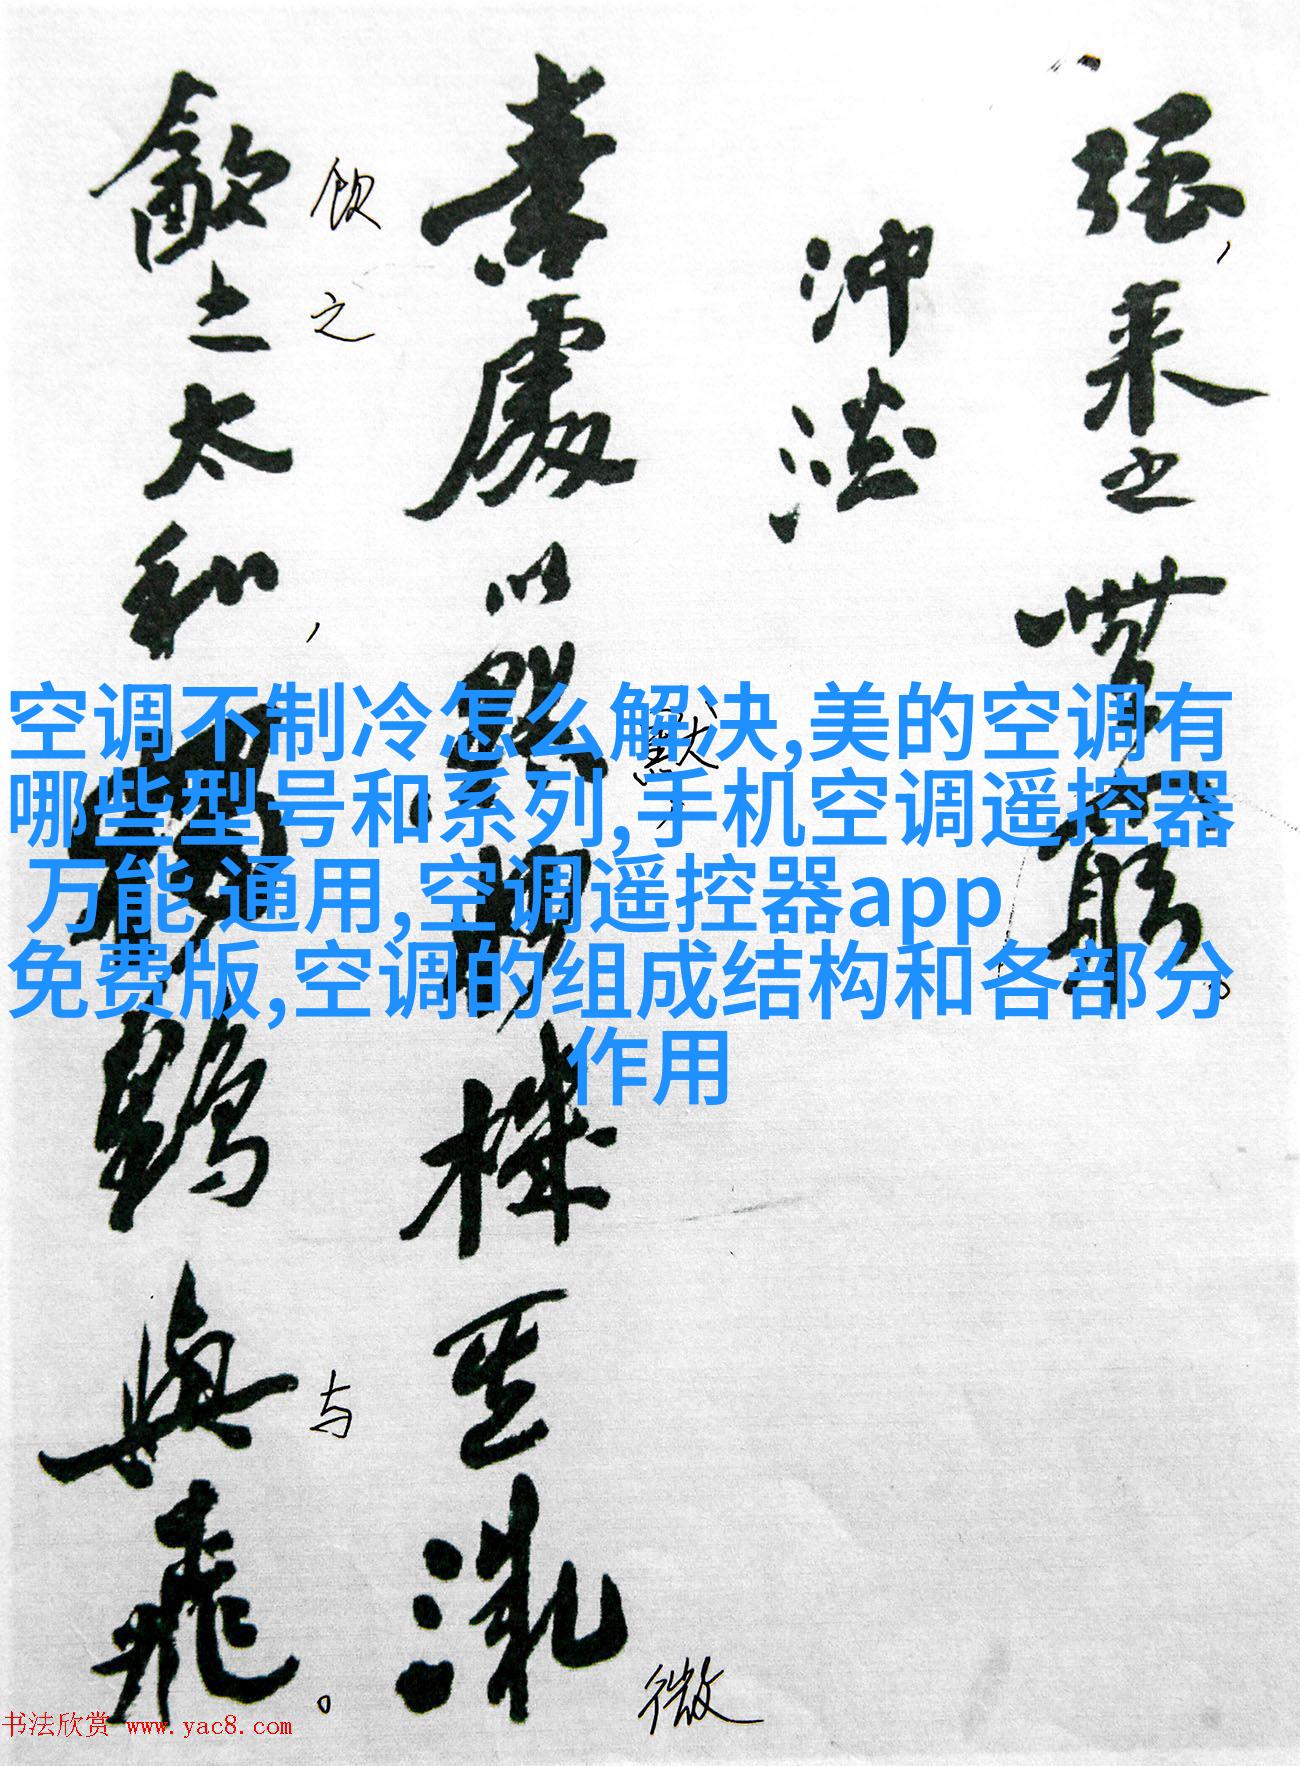 强，来之無窮。
冲淡
素處以默，妙機其微
默
微
飲之太和，獨鶴與飛。
饮之
与
空调不制冷怎么解决,美的空调有
哪些型号和系列,手机空调遥控器
万能 通用,空调遥控器app
免费版,空调的组成结构和各部分
作用
书法欣赏 www.yac8.com